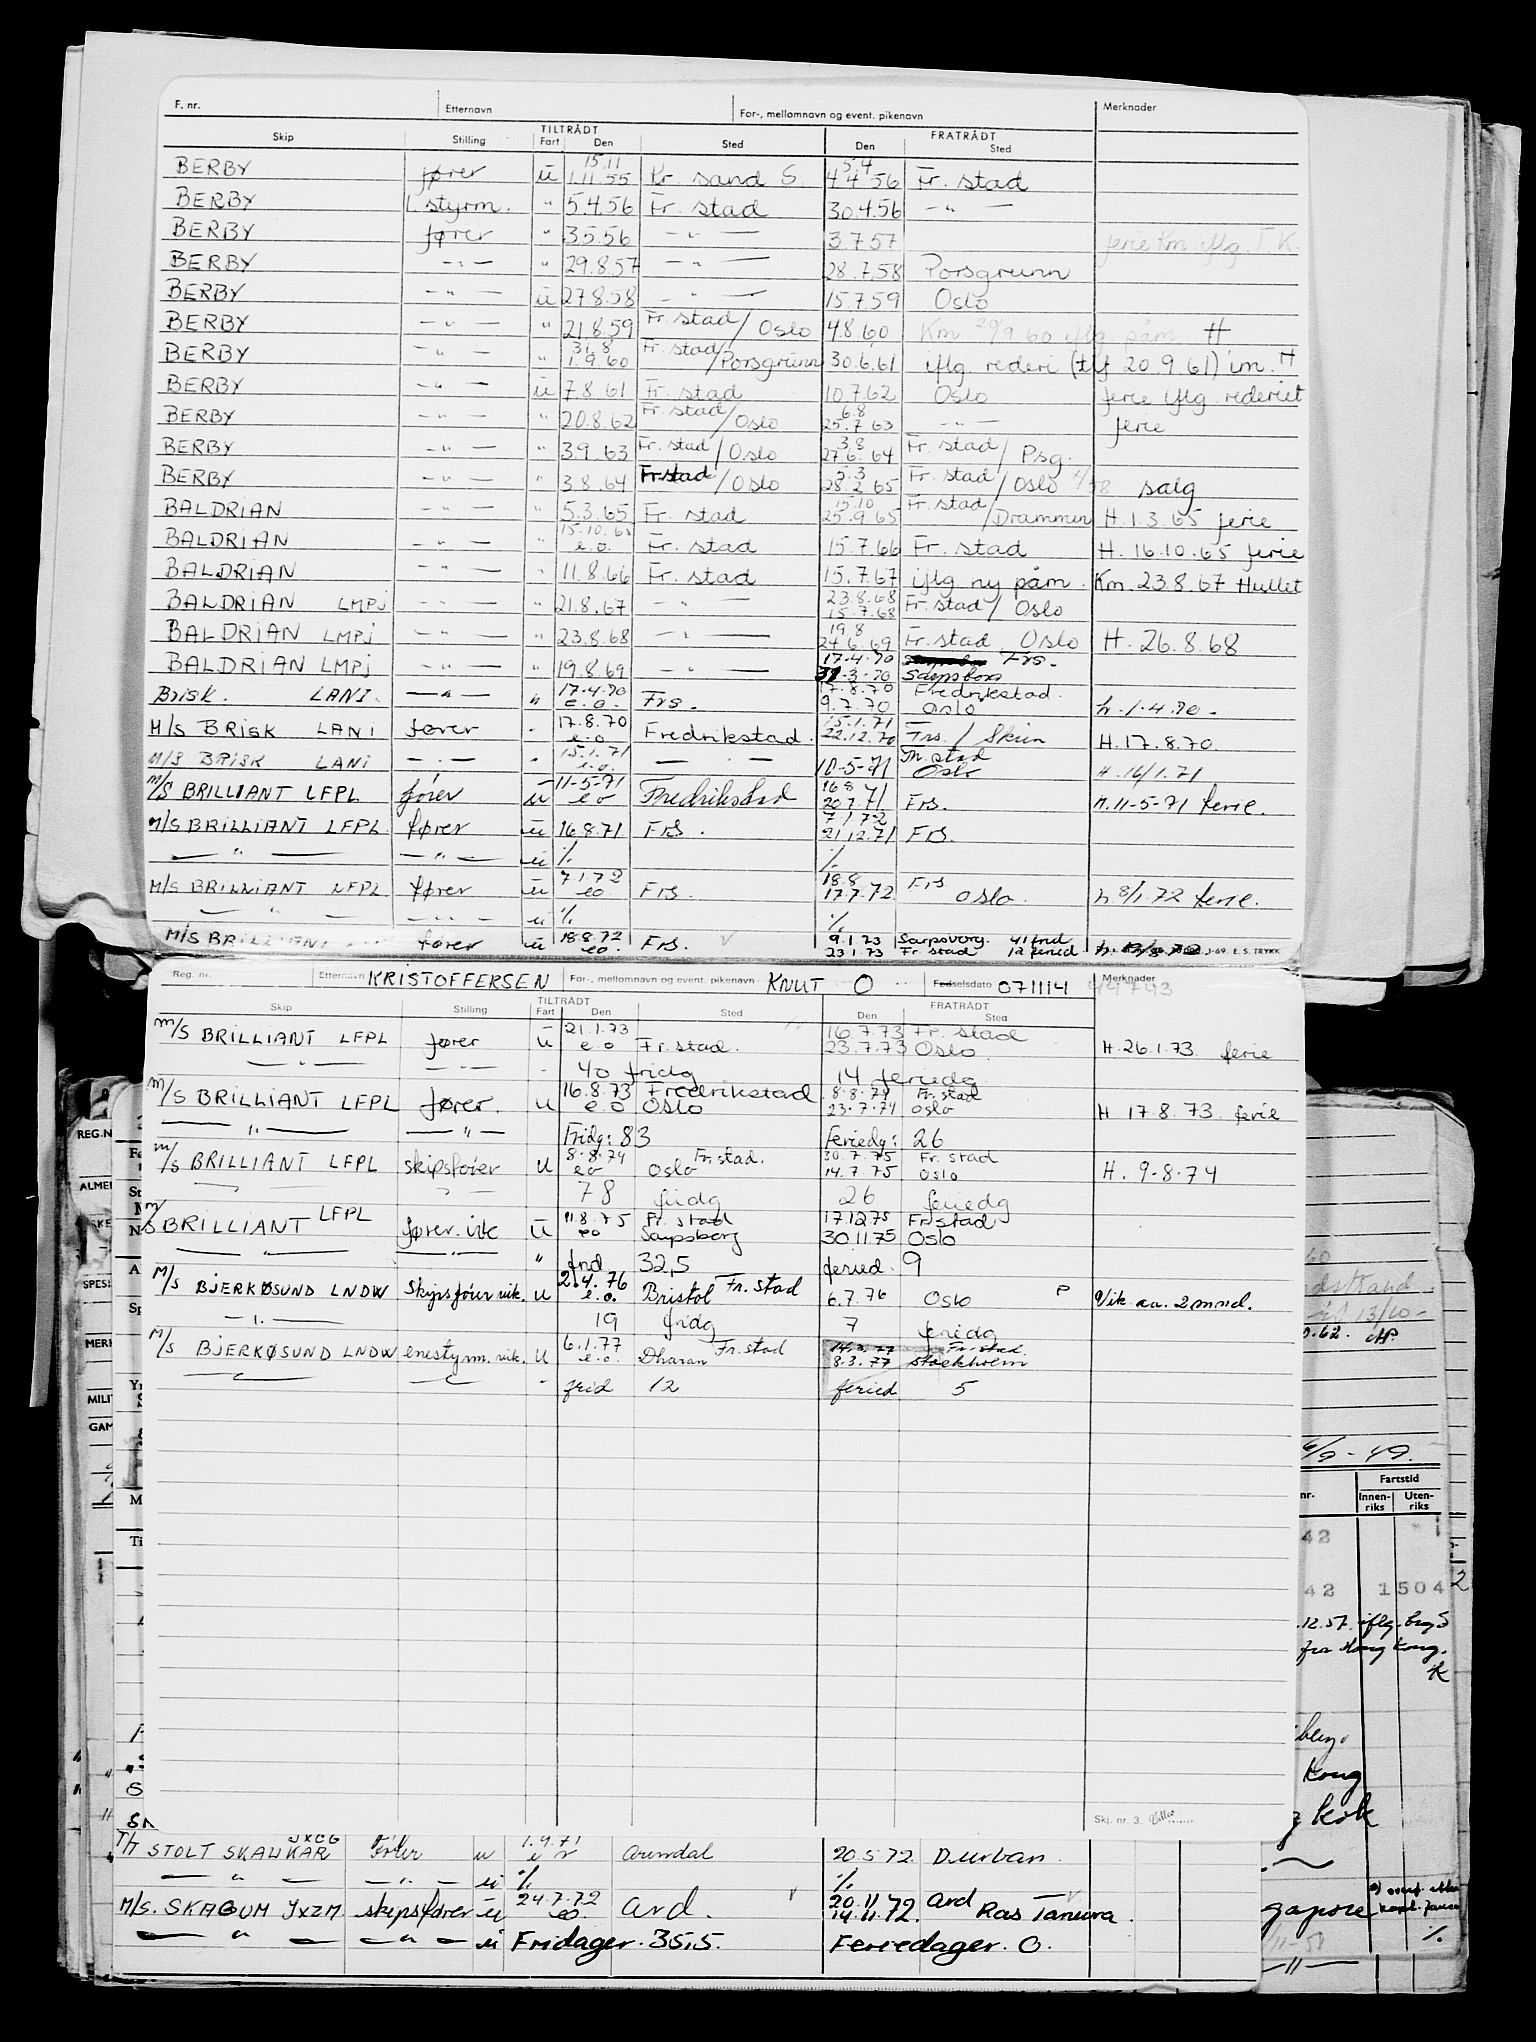 F. nr. Etternavn For-, mellomnavn og event. pikenavn Merknader
TILTRÅDT FRATRÅDT
Skip Stilling Fart Den Sted Den Sted
15.11 5.4
BERBY fører u 1.11.55 Kr. sand S. 4.4.56 Fr. stad
BERBY 1. styrm. " 5.4.56 Fr. stad 30.4.56 — " —
BERBY fører " 3.5.56 — " — 3.7.57 ferie Km iflg. T.K.
BERBY — " — " 29.8.57 — " — 28.7.58 Porsgrunn
BERBY — " — u 27.8.58 — " — 15.7.59 Oslo
BERBY — " — " 21.8.59 Fr. stad / Oslo 4.8.60 Km 20/9 60 iflg påm H
31.8
BERBY — " — " 1.9.60 Fr. stad / Porsgrunn 30.6.61 iflg rederi (tlf 20.9.61) im. H
BERBY — " — u 7.8.61 Fr. stad 10.7.62 Oslo ferie iflg. rederiet
6.8
BERBY — " — " 20.8.62 Fr. stad / Oslo 25.7.63 — " — ferie
3.8
BERBY — " — " 3.9.63 Fr. stad / Oslo 27.6.64 Fr. stad / Psg.
5.3
BERBY — " — " 3.8.64 Fr. stad / Oslo 28.2.65 Fr. stad / Oslo salg
15.10
BALDRIAN — " — " 5.3.65 Fr. stad 25.9.65 Fr. stad / Drammen H. 1.3.65 ferie
15.10.65
BALDRIAN — " — " e.o. Fr. stad 15.7.66 Fr. stad H. 16.10.65 ferie
BALDRIAN — " — " 11.8.66 Fr. stad 15.7.67 iflg ny påm. Km. 23.8.67 Hullet
23.8.68
BALDRIAN LMPJ — " — " 21.8.67 — " — 15.7.68 Fr. stad / Oslo
19.8
BALDRIAN LMPJ — " — " 23.8.68 — " — 24.6.69 Fr. stad Oslo H. 26.8.68
17.4.70 Frs.
BALDRIAN LMPJ — " — " 19.8.69 — " — 31.3.70 Sarpsborg
17.4.70 17.8.70 Fredrikstad.
BRISK. LANI. — " — " e.o. Frs. 9.7.70 Oslo h. 1.4.70.
17.8.70 15.1.71
M/S BRISK LANI fører " e.o Fredrikstad. 22.12.70 Frs. / Skien H. 17.8.70
15.1.71 Fr. stad
M/S BRISK LANI — " — " e.o. — " — 10-5-71 Oslo H. 16/1.71
11-5-71 16.8
M/S BRILLIANT LFPL fører u eo Fredrikstad 20.7.71 Frs. H. 11-5-71 ferie.
7.1.72
M/S BRILLIANT LFPL. fører u 16.8.71 FRS. 21.12.71 FRS.
— " — — " — u % %
7.1.72 18.8 Frs
M/S BRILLIANT LFPL fører u eo. FRS. 17.7.72. Oslo. h 8/1.72 ferie.
— " — — " — u % %
18.8.72 9.1.73 Sarpsborg. 41 frid
M/S BRILLIANT fører u eo. FRS. 23.1.73 Fr. stad 12 feried
J-69. E. S. TRYKK
Reg. nr. Etternavn KRISTOFFERSEN For-, mellomnavn og event. pikenavn KNUT O Fødselsdato 071114 Merknader 44743
TILTRÅDT FRATRÅDT
Skip Stilling Fart Den Sted Den Sted
21.1.73 16.7.73 Fr. stad
M/S BRILLIANT LFPL fører u e.o Fr. stad. 23.7.73 Oslo. H. 26.1.73. ferie
— " — — " — " 40 fridg 14 feriedg
16.8.73 Fredrikstad 8.8.74 Fr. stad
M/S BRILLIANT LFPL fører. u e.o Oslo 23.7.74 Oslo H 17.8.73. ferie
— " — — " — Fridg: 83 Feriedg: 26
8.8.74 Fr. stad. 30.7.75 Fr. stad
M/S BRILLIANT LFPL skipsfører u eo Oslo 14.7.75 Oslo H. 9-8-74
— " — — " — 78 fridg 26 feriedg
11.8.75 Fr. stad 17.12.75 Fr. stad
M/S BRILLIANT LFPL fører. vik u eo Sarpsborg 30.11.75 Oslo
— " — — " — " frid 32,5 feried. 9
2.4.76 Fr. stad
M/S BJERKØSUND LNDW Skipsfører vik. u e.o. Bristol 6.7.76 Oslo P Vik. ca. 2 mnd.
— " — 19 fridg 7 feridg
6.1.77 Fr. stad 14.3.77 Fr. stad.
M/S BJERKØSUND LNDW enestyrm. vik. u e.o. Dharan 8.3.77 Stockholm
— " — — " — " frid 12 feried 5
Skj. nr. 3.
REG.N
ALMEI
SPESI
MERI
MILIT
GAM
dstrand
13/10-
0.62.
6/9 - 49.
nr. Fartstid
Innen-riks Uten-riks
42
42 1504
.12.57. iflg. brev
fra Hong Kong.
K
Kong
kok
gapore
%
— " —
1.9.71
T/T STOLT SKAUKAR JXCG fører u Arendal 20.5.72. Durban.
— " — — " — u % %
24.7.72 20.11.72 Ard
M/S. SKAGUM JXZM. skipsfører u eo Ard. 14.11.72. Ras Tanura.
— " — — " — u Fridager. 35,5. Feriedager. 0.